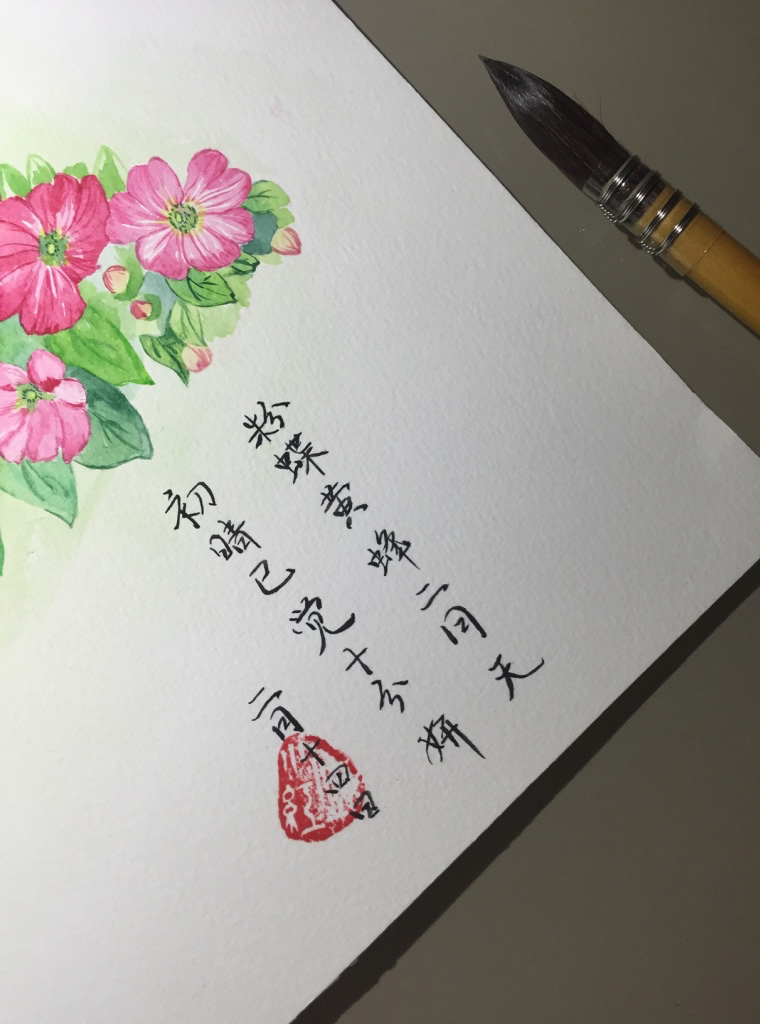 粉蝶黄蜂二月天
初晴已觉十分妍
二月十四日